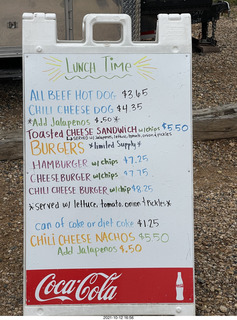 LUNCH TIME
ALL BEEF HOT DOG $3.65
CHILI CHEESE DOG $4.35
*Add Jalapenos $.50*
Toasted CHEESE SANDWICH w/chips $5.50
BURGERS *limited Supply*
HAMBURGER w/ chips $7.25
CHEESE BURGER w/chips $7.75
CHILI CHEESE BURGER w/chip $8.25
*served w/ lettuce, tomato, onion, & pickles*
can of coke or diet coke $1.25
CHILI CHEESE NACHOS $5.50
Add Jalapenos $.50
Coca-Cola
2021-10-12 16:56